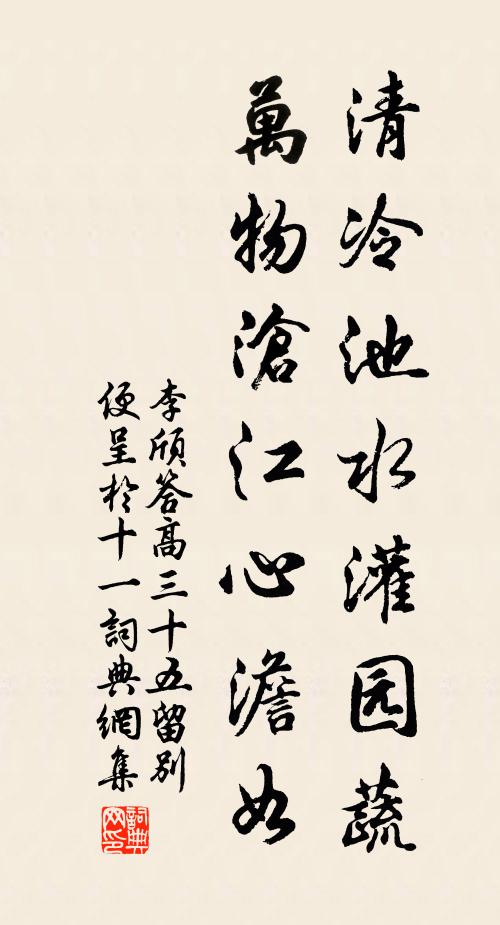 清冷池水灌园蔬
萬物滄江心澹如
李頎答高三十五留別
便呈於十一詞典網集
詞典
网印